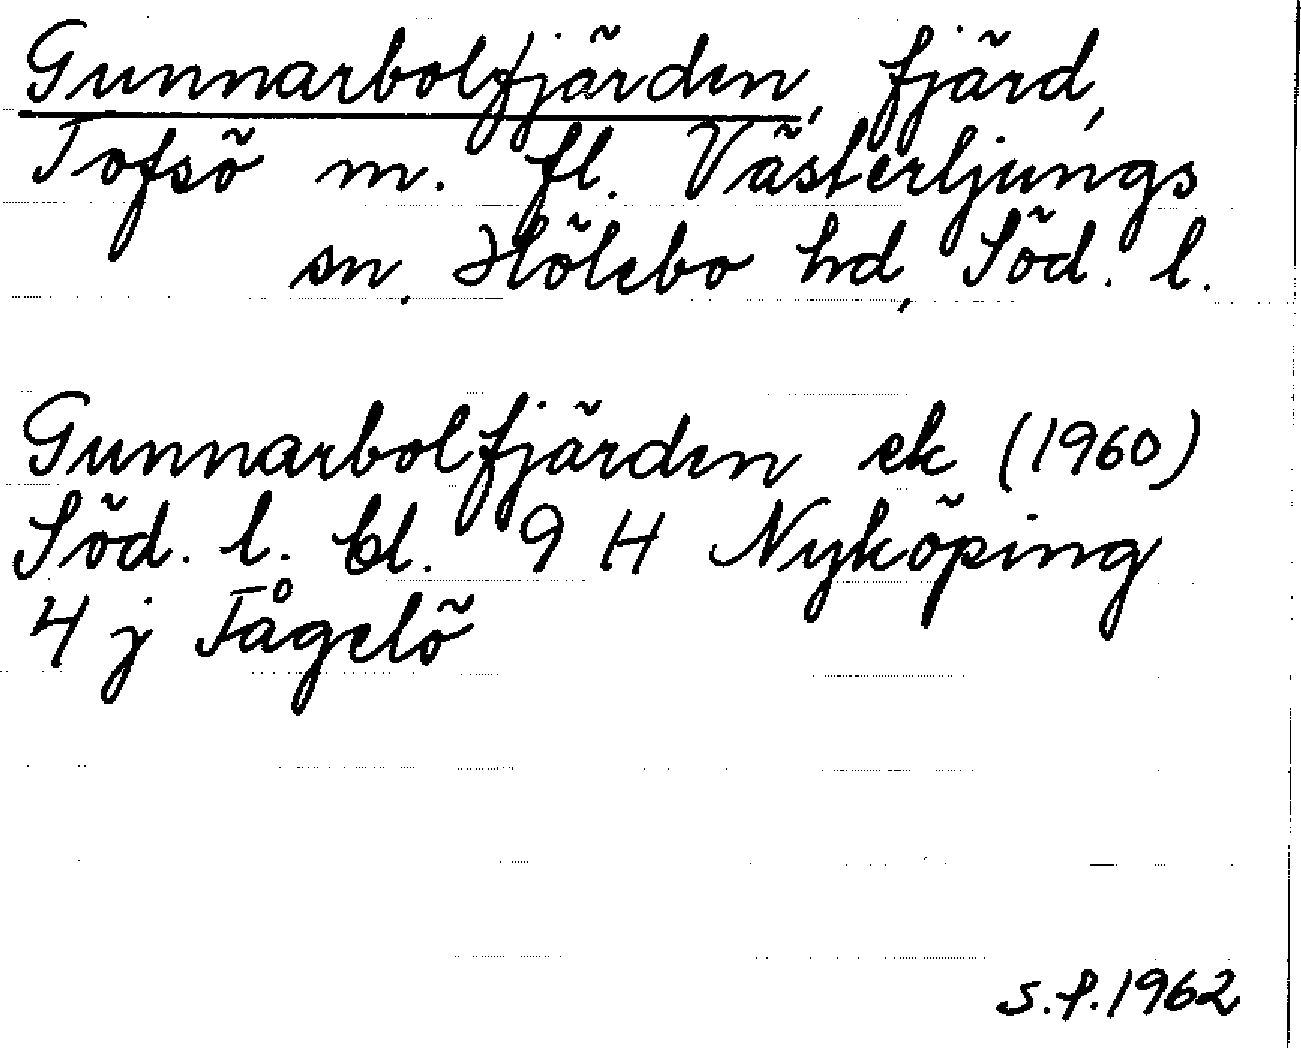 Gunnarbolfjärden, fjärd,
Tofsö m. fl. Västerljungs
sn, Hölebo hd, Söd. l.
Gunnarbolfjärden ek (1960)
Söd. l. bl. 9 H Nyköping
4 j Fågelö
S.f. 1962